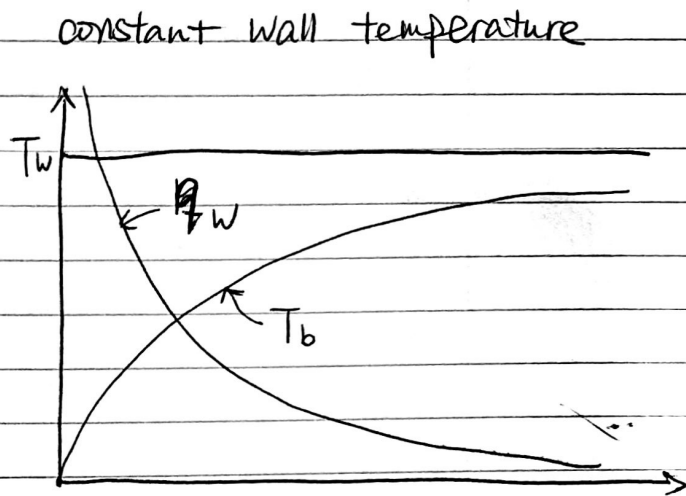 constant wall temperature
Tw
qw
Tb